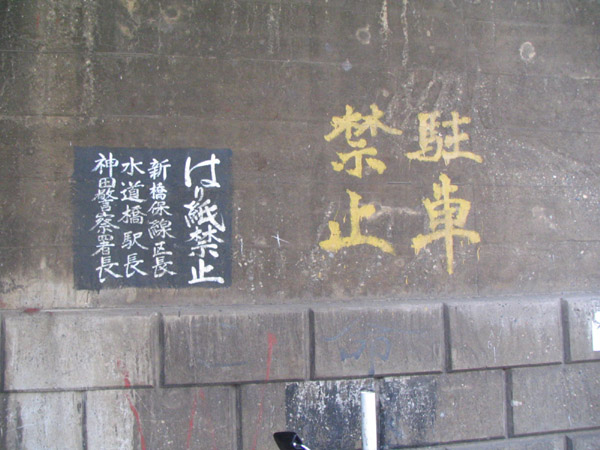 駐車
禁止
はり紙禁止
新橋保線区長
水道橋駅長
神田警察署長